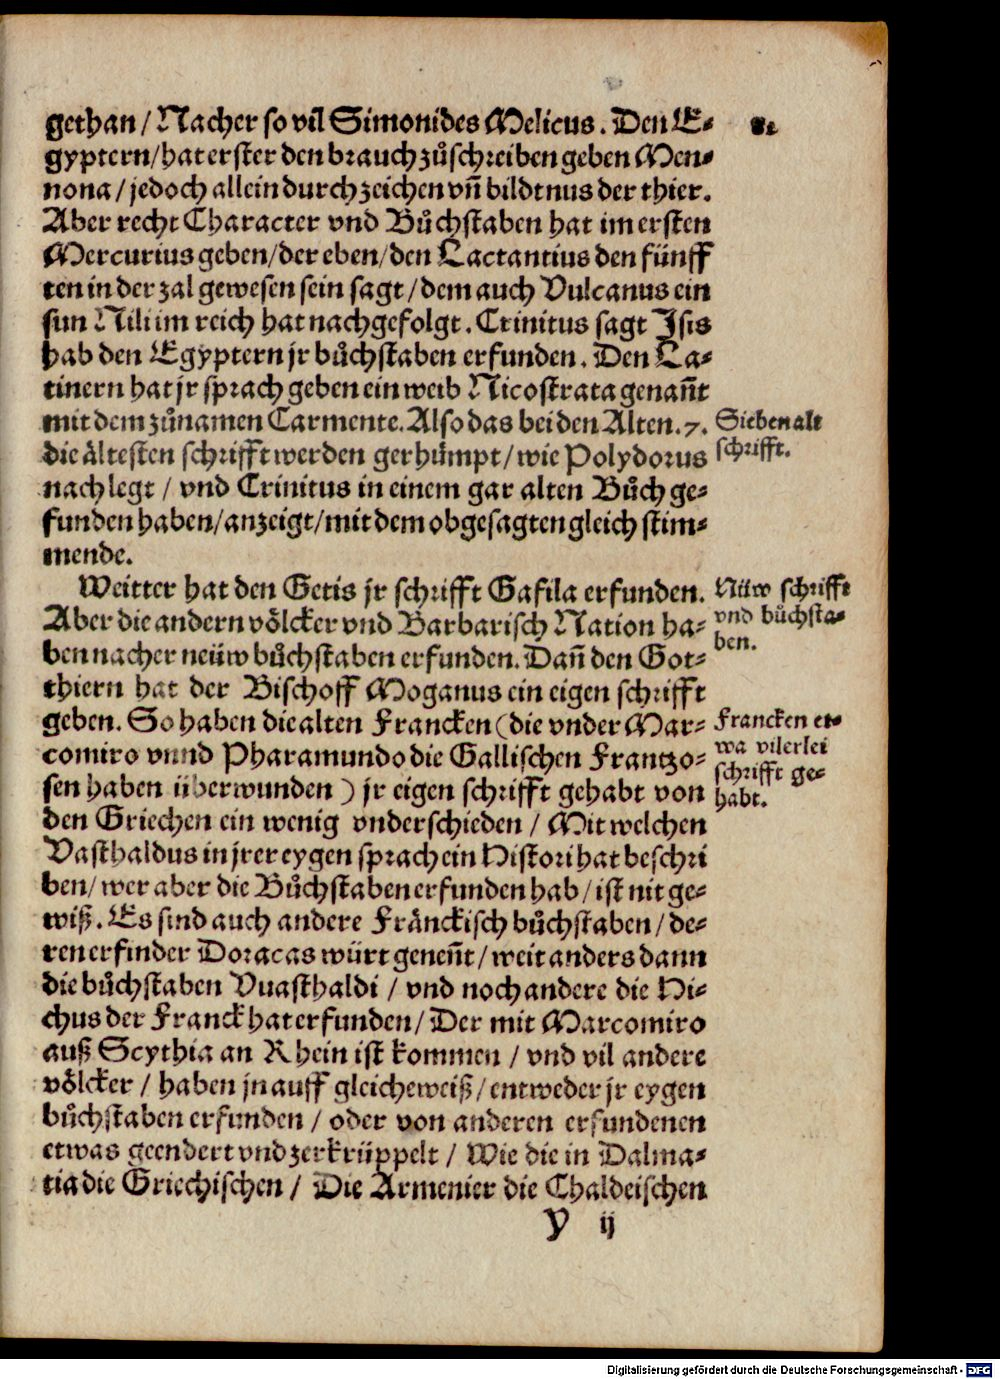 gethan / Nacher so vil Simonides Melicus. Den E⸗
gyptern / hat erster den brauch zůschreiben geben Men⸗
nona / jedoch allein durch zeichen vn̄ bildtnus der thier.
Aber recht Character vnd Bůchstaben hat im ersten
Mercurius geben / der eben / den Lactantius den fünff
ten in der zal gewesen sein sagt / dem auch Vulcanus ein
sun Nili im reich hat nachgefolgt. Crinitus sagt Isis
hab den Egyptern jr bůchstaben erfunden. Den La⸗
tinern hat jr sprach geben ein weib Nicostrata genan̄t
mit dem zůnamen Carmente. Also das bei den Alten .7.
die åltesten schrifft werden gerhůmpt / wie Polydorus
nach legt / vnd Crinitus in einem gar alten Bůch ge⸗
funden haben / anzeigt / mit dem obgesagten gleich stim⸗
mende.
Sieben alt
schrifft.
Weitter hat den Getis jr schrifft Gafila erfunden.
Aber die andern vôlcker vnd Barbarisch Nation ha⸗
ben nacher neüw bůchstaben erfunden. Dan̄ den Got⸗
thiern hat der Bischoff Moganus ein eigen schrifft
geben. So haben die alten Francken (die vnder Mar⸗
comiro vnnd Pharamundo die Gallischen Frantzo⸗
sen haben überwunden) jr eigen schrifft gehabt von
den Griechen ein wenig vnderschieden / Mit welchen
Vasthaldus in jrer eygen sprach ein Histori hat beschri
ben / wer aber die Bůchstaben erfunden hab / ist nit ge⸗
wiß. Es sind auch andere Frånckisch bůchstaben / de⸗
ren erfinder Doracas würt genen̄t / weit anders dann
die bůchstaben Vuasthaldi / vnd noch andere die Hi⸗
chus der Franck hat erfunden / Der mit Marcomiro
auß Scythia an Rhein ist kommen / vnd vil andere
vôlcker / haben jn auff gleiche weiß / entweder jr eygen
bůchstaben erfunden / oder von anderen erfundenen
etwas geendert vnd zerkrüppelt / Wie die in Dalma⸗
tia die Griechischen / Die Armenier die Chaldeischen
Nüw schrifft
vnd bůchsta⸗
ben.
Francken et⸗
wa vilerlei
schrifft ge⸗
habt.
Y ij
Digitalisierung gefördert durch die Deutsche Forschungsgemeinschaft - DFG